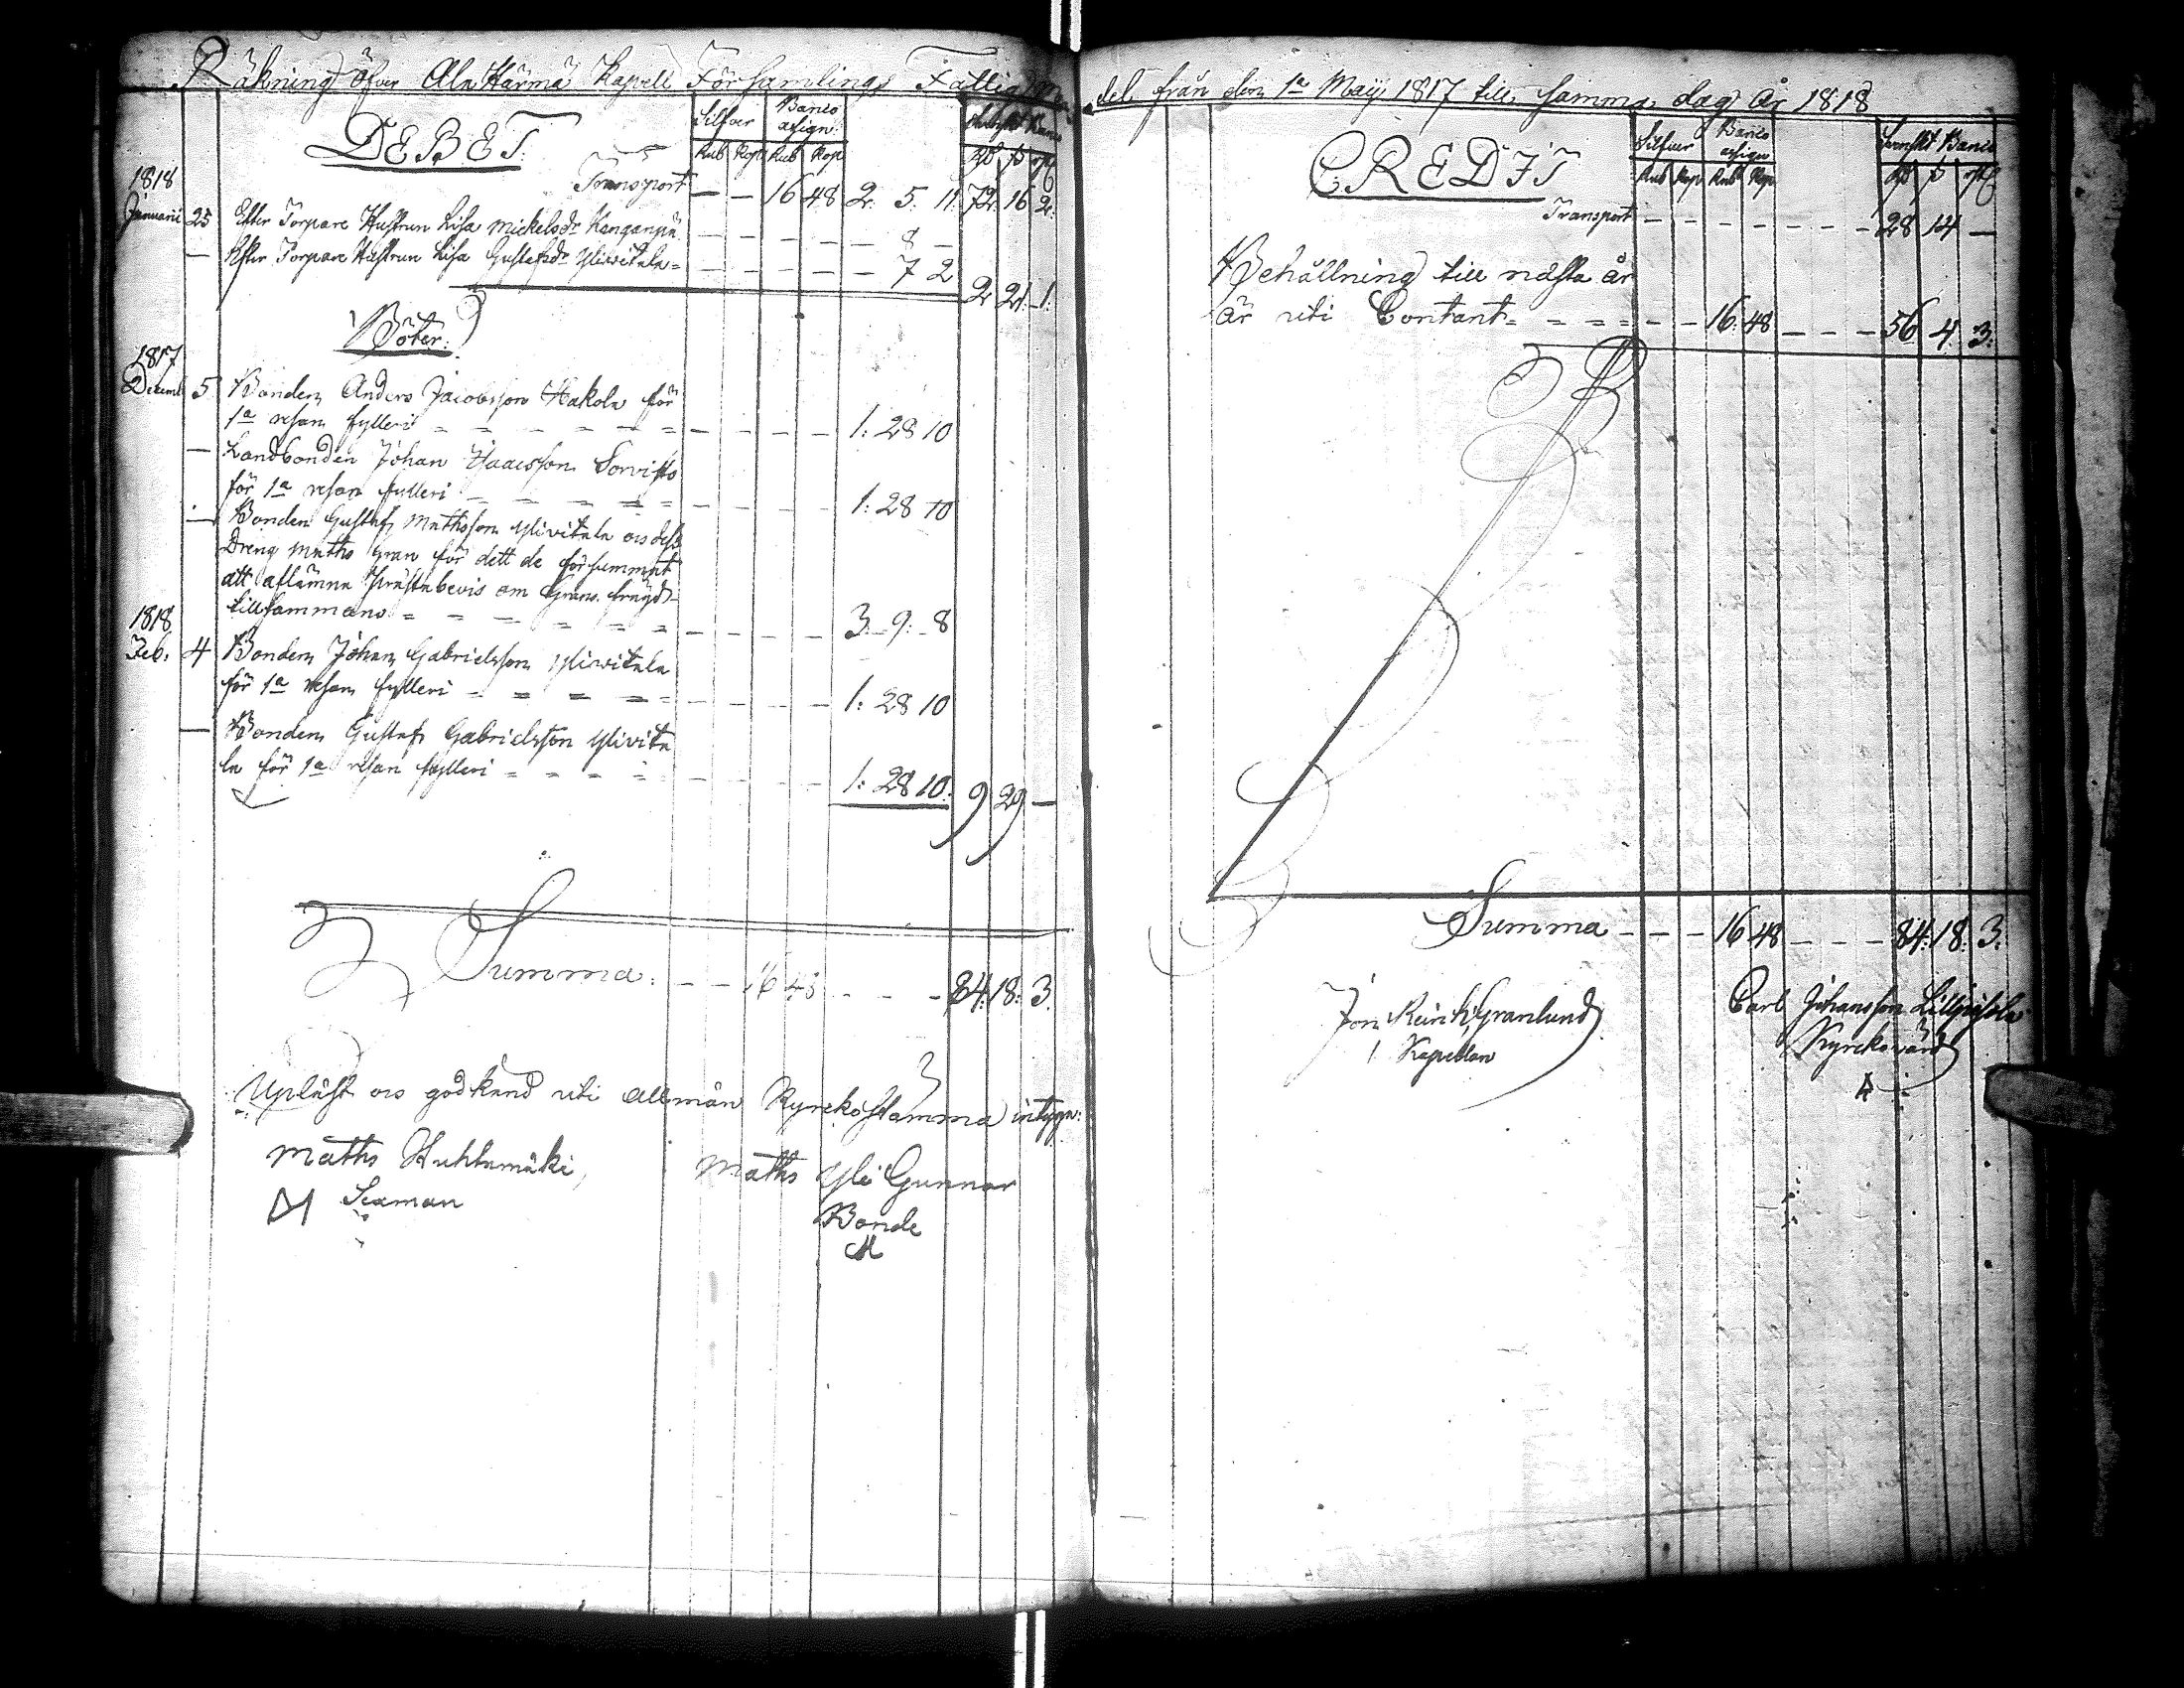 Räkning öfver Ala Härmä Kapell Församlings Fattig
DEBET.
Silfver Banco assign: Svenskt Banco
Rub Kop Rub Kop
Transport — — 16 48 2: 5. 11. 72. 16 2:
1818
Januarii 25 Efter Torpare Hustrun Lisa Mickelsdr Kanganpä — — — — — 8 —
— Efter Torpare Hustrun Lisa Gustafsdr Yliwitala — — — — — 7 2 2 21. 1.
Böter:
1817
Decemb 5 Bonden Anders Jacobsson Hakola för
1a resan fylleri — — — — 1: 28 10
— Landbonden Johan Isaacsson Sorvisto
för 1a resan fylleri — — — — 1: 28 10
— Bonden Gustaf Mathsson Ylivitala os dess
Dreng Maths Gran för dett de försummat
att aflämna Prästabevis om Grans frägd
tillsammans — — — — 3. 9: 8
1818
Feb: 4 Bonden Johan Gabrielsson Yliwitala
för 1a resan fylleri — — — — 1: 28 10
— Bonden Gustaf Gabrielsson Ylivita
la för 1a resan fylleri — — — — 1: 28 10. 9 29 —
Summa: — — 16 48 — — — 84: 18: 3.
Upläst os godkänd uti allmän Kyrckostämma intyga:
Maths Huhtamäki, Maths Yli Gunnar
Sexman Bonde
del från den 1a Maji 1817 till samma dag År 1818
CREDIT
Silfver Banco assign Svenskt Banco
Rub Kop Rub Kop
Transport — — — — — — — 28 14 —
Behållning till nästa år
är uti Contant — — 16: 48 — — — 56 4. 3:
Summa — — — 16 48 — — — 84: 18: 3:
Granlund Carl Johansson
Kapellan Kyrckovärd